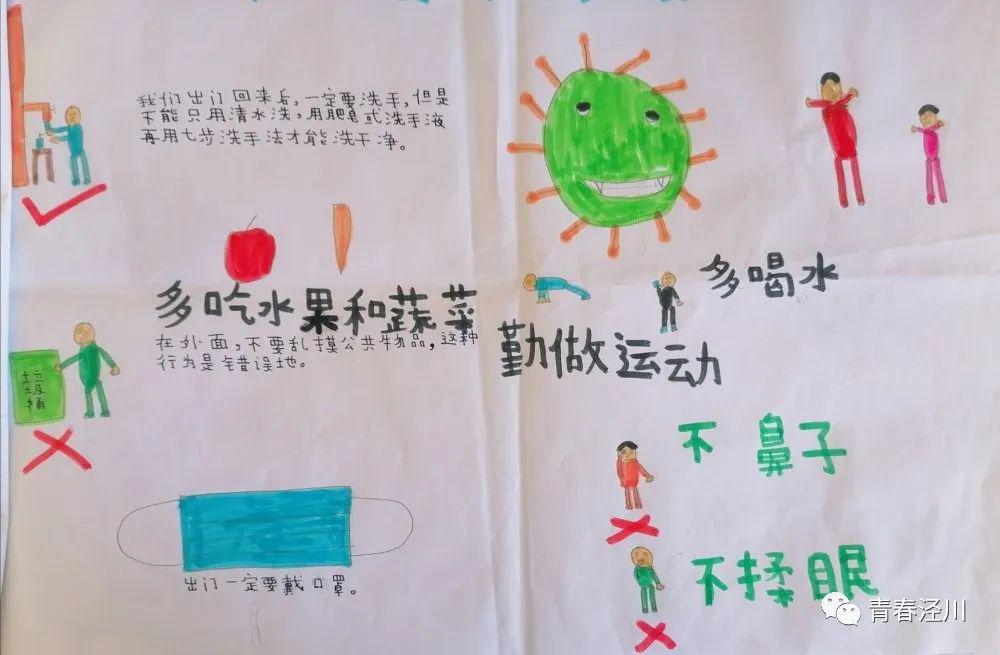 我们出门回来后，一定要洗手，但是
不能只用清水洗，用肥皂或洗手液
再用七步洗手法才能洗干净。
多吃水果和蔬菜
在外面，不要乱摸公共物品，这种
行为是错误地。
垃
圾
桶
出门一定要戴口罩。
多喝水
勤做运动
不 鼻子
不揉眼
青春泾川